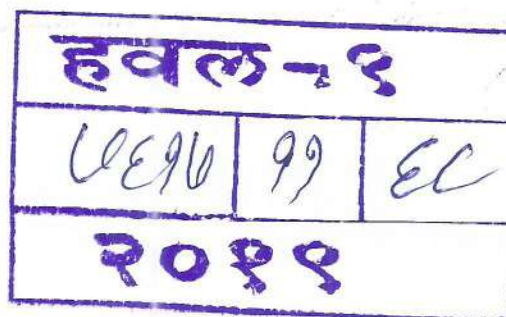 हवल-९
७६१७ ११ ६८
२०१९